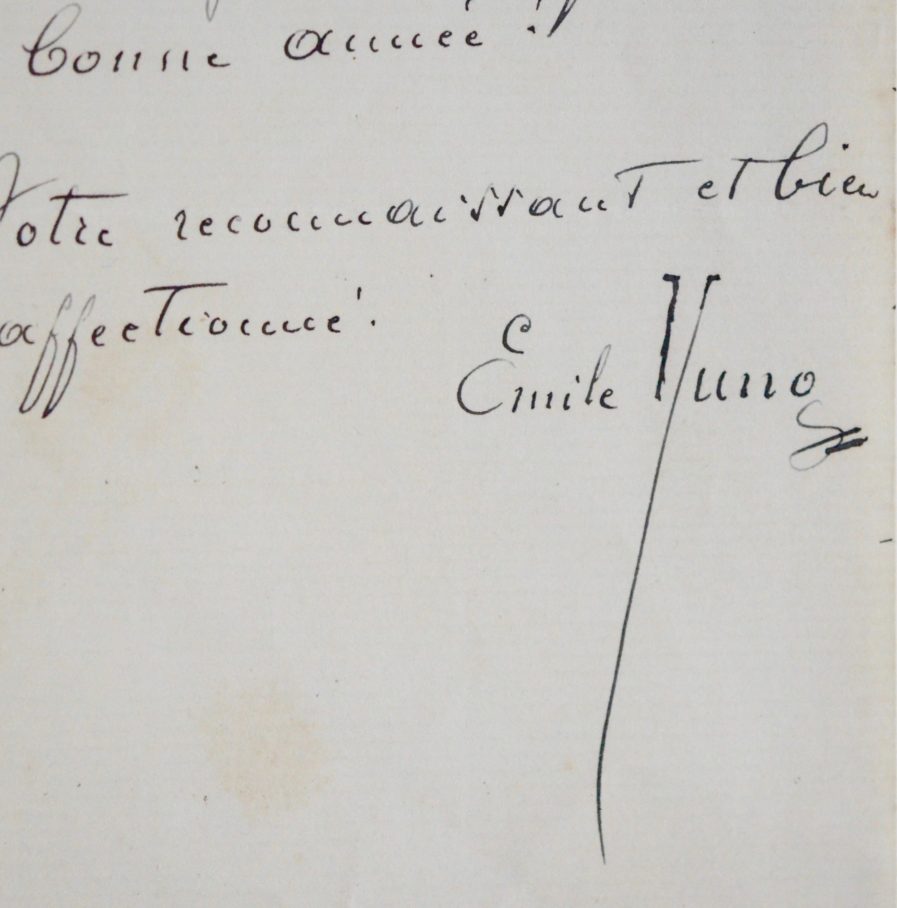 bonne année !
Votre reconnaissant et bien
affectionné.
Emile Yung